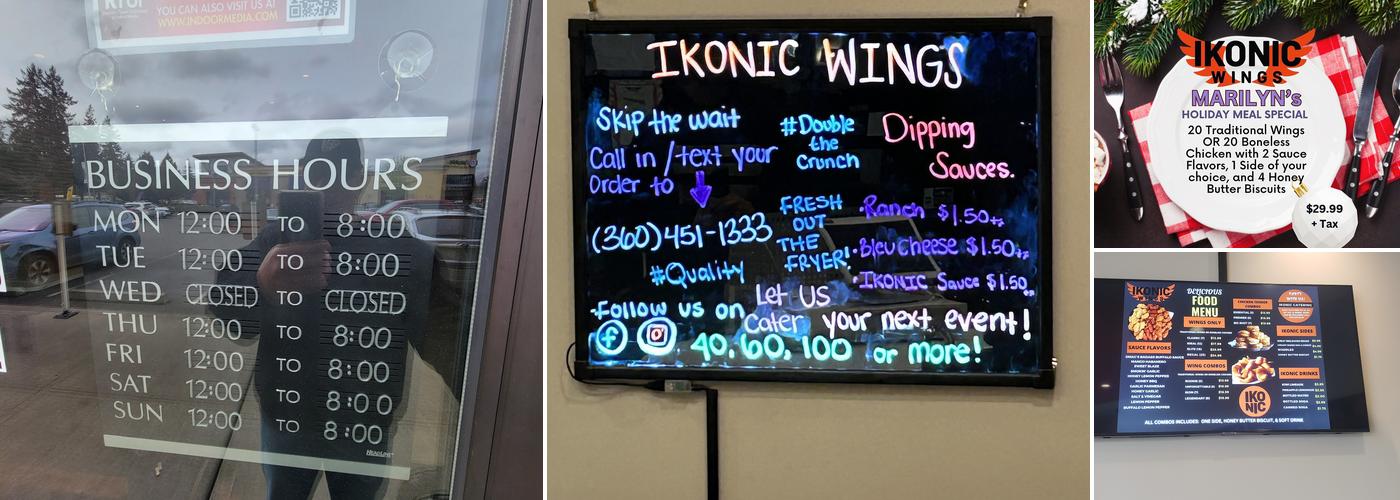 YOU CAN ALSO VISIT US AT
WWW.INDOORMEDIA.COM
BUSINESS HOURS
MON 12:00 TO 8:00
TUE 12:00 TO 8:00
WED CLOSED TO CLOSED
THU 12:00 TO 8:00
FRI 12:00 TO 8:00
SAT 12:00 TO 8:00
SUN 12:00 TO 8:00
HeadLine
IKONIC WINGS
Skip the wait
Call in / text your
Order to
(360)451-1333
#Quality
Follow us on
#Double
the
Crunch
FRESH
OUT
THE
FRYER!
Dipping
Sauces.
Ranch $1.50
Bleu cheese $1.50
IKONIC Sauce $1.50
Let US
Cater your next event!
40, 60, 100 or more!
IKONIC
WINGS
MARILYN's
HOLIDAY MEAL SPECIAL
20 Traditional Wings
OR 20 Boneless
Chicken with 2 Sauce
Flavors, 1 Side of your
choice, and 4 Honey
Butter Biscuits
$29.99
+ Tax
IKONIC
DELICIOUS
FOOD
MENU
WINGS ONLY
WING COMBOS
SAUCE FLAVORS
MANGO HABANERO
SWEET BLAZE
HONEY LEMON PEPPER
HONEY BBQ
GARLIC PARMESAN
HONEY GARLIC
SALT & VINEGAR
LEMON PEPPER
BUFFALO LEMON PEPPER
CHICKEN TENDER
COMBOS
IKONIC CATERING
IKONIC SIDES
IKONIC DRINKS
IKO
NIC
ALL COMBOS INCLUDES: ONE SIDE, HONEY BUTTER BISCUIT, & SOFT DRINK